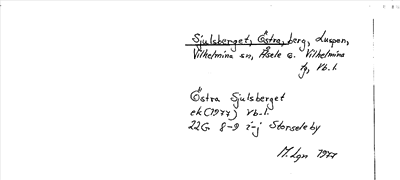 Sjulsberget, Östra, berg, Luspen,
Vilhelmina sn, Åsele o. Vilhelmina
tg, Vb. l.
Östra Sjulsberget
ek (1977) Vb. l.
22G 8-9 i-j Storseleby
M. Lgn 1977